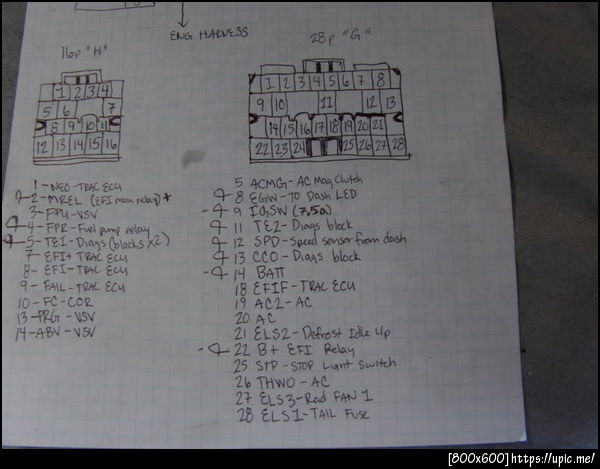 ENG HARNESS
16p "H"
28p "G"
1 2 3 4
5 6 7
8 9 10 11
12 13 14 15 16
1 2 3 4 5 6 7 8
9 10 11 12 13
14 15 16 17 18 19 20 21
22 23 24 25 26 27 28
1 - NEO - TRAC ECU
2 - MREL (EFI main relay) +
3 - FPU - VSV
4 - FPR - Fuel pump relay
5 - TE1 - Diags (blocks x2)
7 - EFI+ TRAC ECU
8 - EFI - TRAC ECU
9 - FAIL - TRAC ECU
10 - FC - COR
13 - PRG - VSV
14 - ABV - VSV
5 ACMG - AC Mag Clutch
8 EGW - TO Dash LED
9 IGSW (7.5a)
11 TE2 - Diags block
12 SPD - Speed sensor from dash
13 CCO - Diags block
14 BATT
18 EFIF - TRAC ECU
19 AC2 - AC
20 AC
21 ELS2 - Defrost Idle Up
22 B+ EFI Relay
25 STP - STOP Light Switch
26 THWO - AC
27 ELS3 - Rad FAN 1
28 ELS1 - TAIL Fuse
[800x600] https://upic.me/